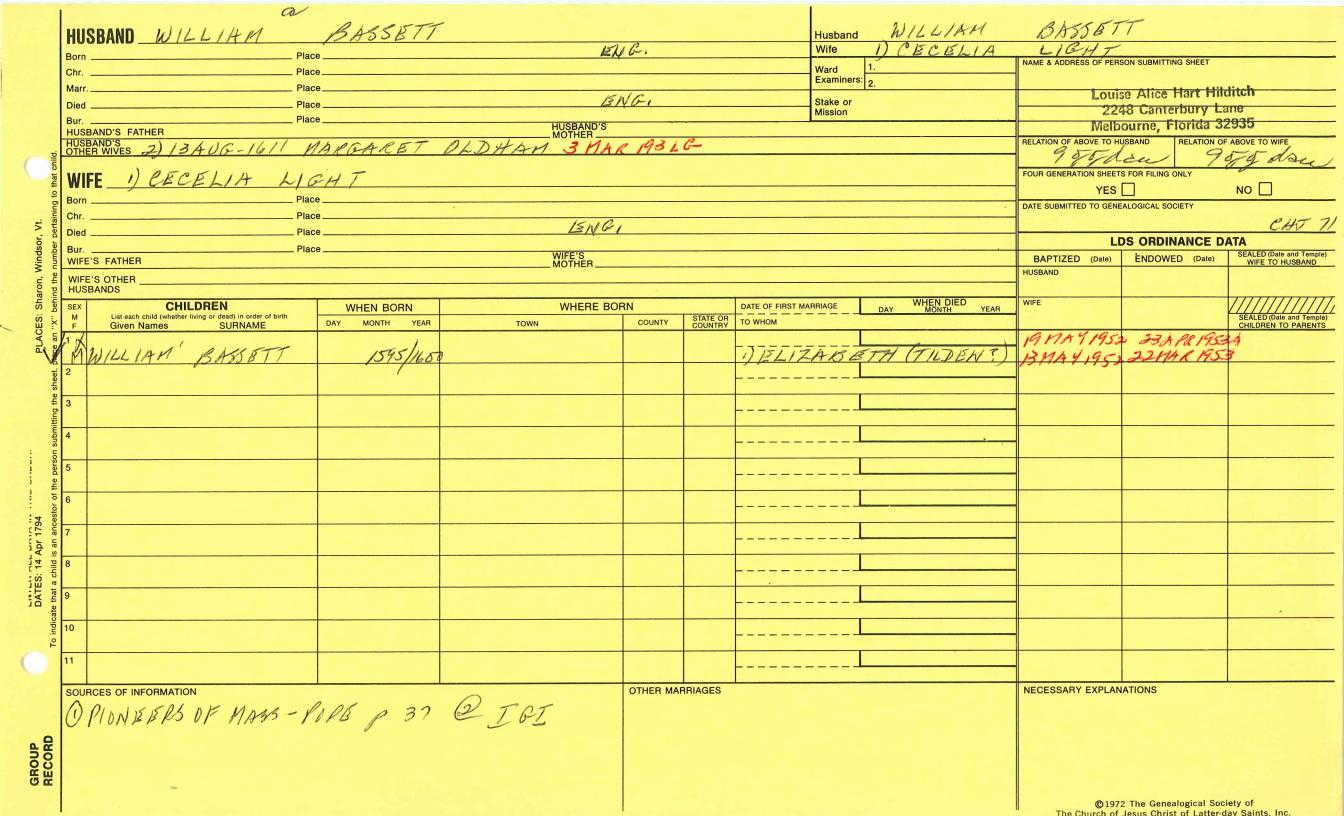 HUSBAND WILLIAM BASSETT
Born Place ENG.
Chr. Place
Marr. Place
Died Place ENG.
Bur. Place
HUSBAND'S FATHER HUSBAND'S MOTHER
HUSBAND'S OTHER WIVES 2) 13 AUG-1611 MARGARET OLDHAM 3 MAR 193 LG
WIFE 1) CECELIA LIGHT
Born Place
Chr. Place
Died Place ENG.
Bur. Place
WIFE'S FATHER WIFE'S MOTHER
WIFE'S OTHER HUSBANDS
Husband WILLIAM BASSETT
Wife 1) CECELIA LIGHT
Ward Examiners: 1.
2.
Stake or Mission
NAME & ADDRESS OF PERSON SUBMITTING SHEET
Louise Alice Hart Hilditch
2248 Canterbury Lane
Melbourne, Florida 32935
RELATION OF ABOVE TO HUSBAND RELATION OF ABOVE TO WIFE
FOUR GENERATION SHEETS FOR FILING ONLY
YES NO
DATE SUBMITTED TO GENEALOGICAL SOCIETY
CHJ 71
LDS ORDINANCE DATA
BAPTIZED (Date) ENDOWED (Date) SEALED (Date and Temple) WIFE TO HUSBAND
HUSBAND
WIFE
SEALED (Date and Temple) CHILDREN TO PARENTS
SEX M F CHILDREN WHEN BORN WHERE BORN DATE OF FIRST MARRIAGE WHEN DIED
List each child (whether living or dead) in order of birth
Given Names SURNAME DAY MONTH YEAR TOWN COUNTY STATE OR COUNTRY TO WHOM DAY MONTH YEAR
1 19 MAY 1952 23 APR 1953A
M WILLIAM BASSETT 1595/1600 1) ELIZABETH (TILDEN?) 13 MAY 1952 22 MAR 1953
2
3
4
5
6
7
8
9
10
11
SOURCES OF INFORMATION
① PIONEERS OF MASS-POPE p 37 ② IGI
OTHER MARRIAGES
NECESSARY EXPLANATIONS
©1972 The Genealogical Society of
The Church of Jesus Christ of Latter-day Saints, Inc.
PLACES: Sharon, Windsor, Vt.
DATES: 14 Apr 1794
To indicate that a child is an ancestor of the person submitting the sheet, place an "X" behind the number pertaining to that child.
GROUP
RECORD